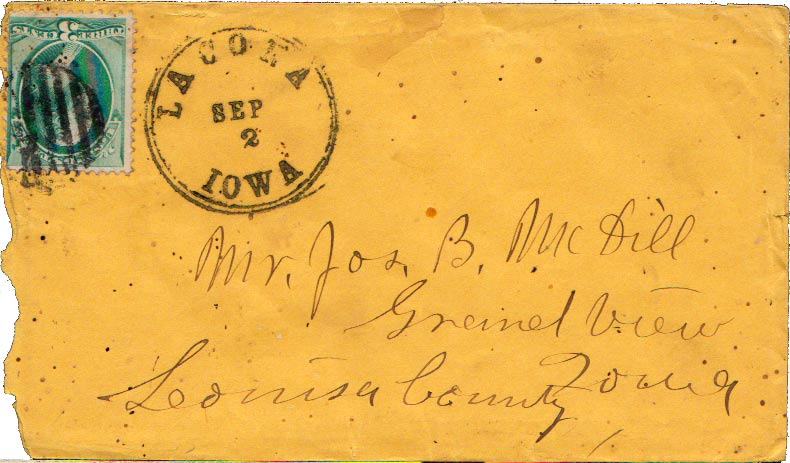 LACONA
SEP
2
IOWA
Mr. Jos. B. McDill
Grand View
Louisa County Iowa